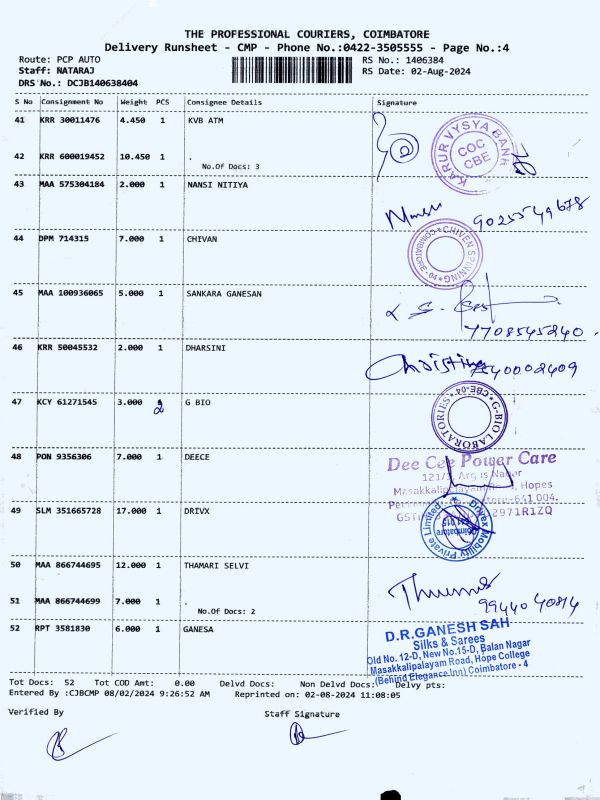 THE PROFESSIONAL COURIERS, COIMBATORE
Delivery Runsheet - CMP - Phone No.:0422-3505555 - Page No.:4
Route: PCP AUTO RS No.: 1406384
Staff: NATARAJ RS Date: 02-Aug-2024
DRS No.: DCJB140638404
S No Consignment No Weight PCS Consignee Details Signature
41 KRR 30011476 4.450 1 KVB ATM
KARUR VYSYA BANK
COC
CBE
42 KRR 600019452 10.450 1 .
No.Of Docs: 3
43 MAA 575304184 2.000 1 NANSI NITIYA
9025549678
44 DPM 714315 7.000 1 CHIVAN
CHIVEN SPINNING
COIMBATORE - 04
45 MAA 100936065 5.000 1 SANKARA GANESAN
7708545240.
46 KRR 50045532 2.000 1 DHARSINI
Christina
40002409
47 KCY 61271545 3.000 2 G BIO
G-BIO LABORATORIES
CBE-04
48 PON 9356306 7.000 1 DEECE
Dee Cee Power Care
Nagar
Hopes
641 004.
2971R1ZQ
49 SLM 351665728 17.000 1 DRIVX
Drivex Mobility Private Limited
Coimbatore
641 015
50 MAA 866744695 12.000 1 THAMARI SELVI
99440 40814
51 MAA 866744699 7.000 1 .
No.Of Docs: 2
52 RPT 3581830 6.000 1 GANESA
D.R.GANESH SAH
Silks & Sarees
Old No. 12-D, New No.15-D, Balan Nagar
Masakkalipalayam Road, Hope College
(Behind Elegance Inn) Coimbatore - 4
Tot Docs: 52 Tot COD Amt: 0.00 Delvd Docs: Non Delvd Docs: Delvy pts:
Entered By :CJBCMP 08/02/2024 9:26:52 AM Reprinted on: 02-08-2024 11:08:05
Verified By Staff Signature